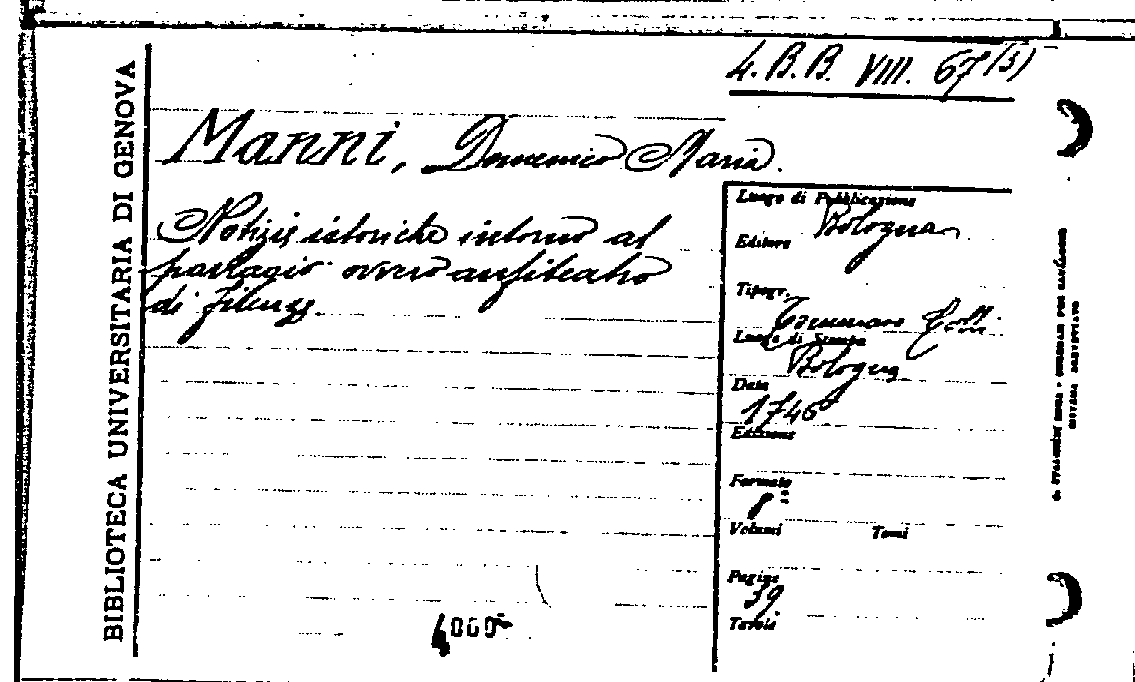 4. B. B. VIII. 67 (3)
BIBLIOTECA UNIVERSITARIA DI GENOVA
Manni, Domenico Maria.
Notizie istoriche intorno al
parlagio ovvero anfiteatro
di Firenze.
Luogo di Pubblicazione
Bologna
Editore
Tipogr.
Tommaso Colli
Luogo di Stampa
Bologna
Data
1746
Edizione
Formato
8°
Volumi Tomi
Pagine
39
Tavole
4000